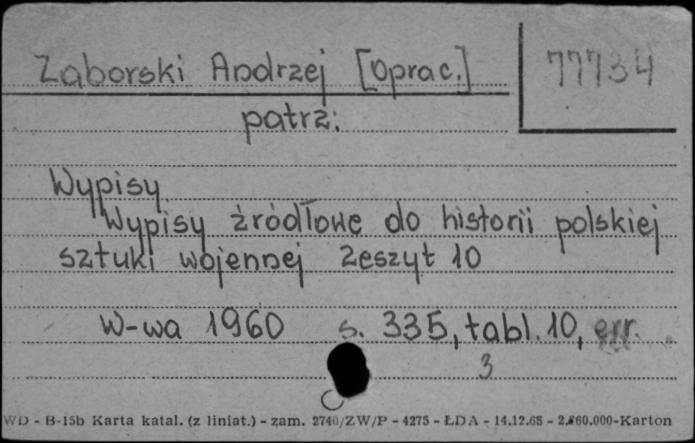 Zaborski Andrzej [Oprac.]
77734
patrz:
Wypisy
Wypisy źródłowe do historii polskiej
sztuki wojennej Zeszyt 10
W-wa 1960 s. 335, tabl. 10, err.
3
WD - B-15b Karta katal. (z liniat.) - zam. 2740/ZW/P - 4275 - ŁDA - 14.12.65 - 2.860.000-Karton